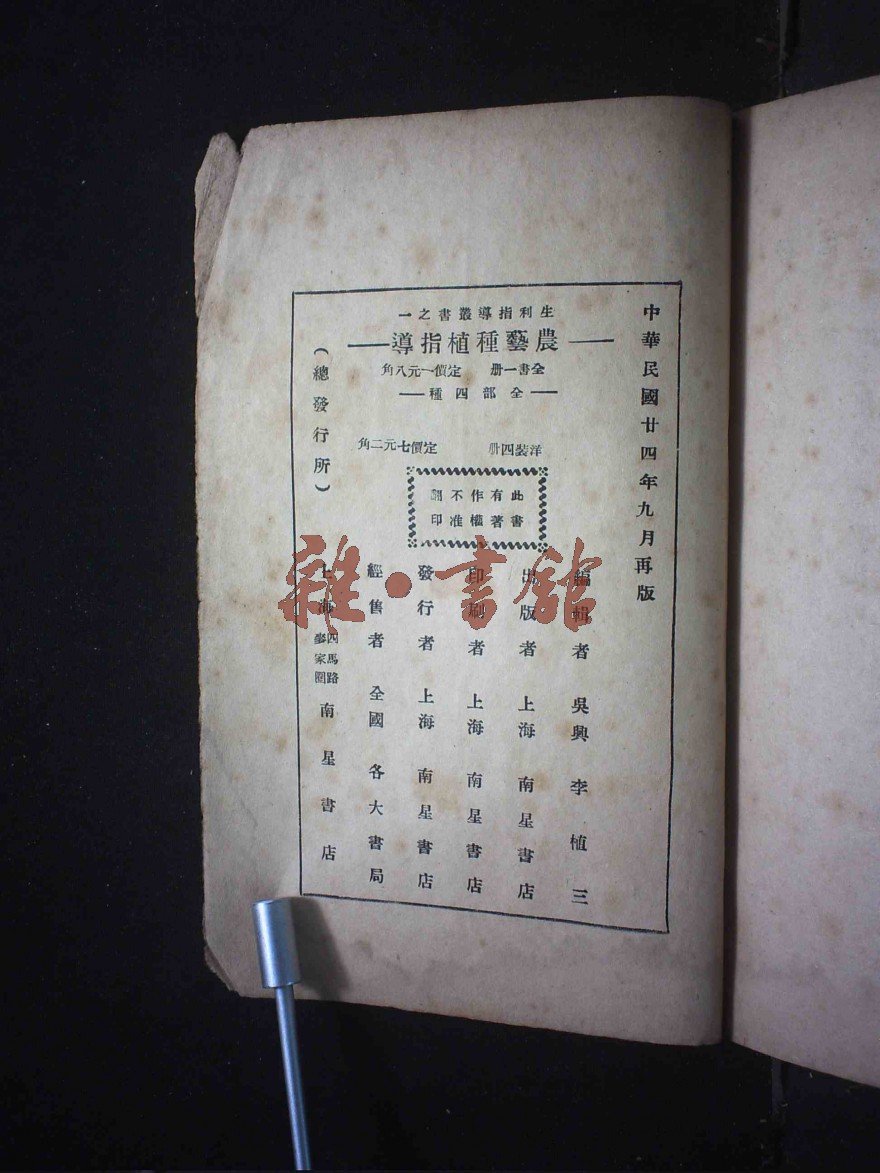 中華民國廿四年九月再版
生利指導叢書之一
農藝種植指導
全書一册　定價一元八角
全部四種
洋裝四册　定價七元二角
此書有著作權不准翻印
編輯者　吳興　李植三
出版者　上海　南星書店
印刷者　上海　南星書店
發行者　上海　南星書店
經售者　全國　各大書局
（總發行所）
上海　四馬路麥家圈　南星書店
雜·書館